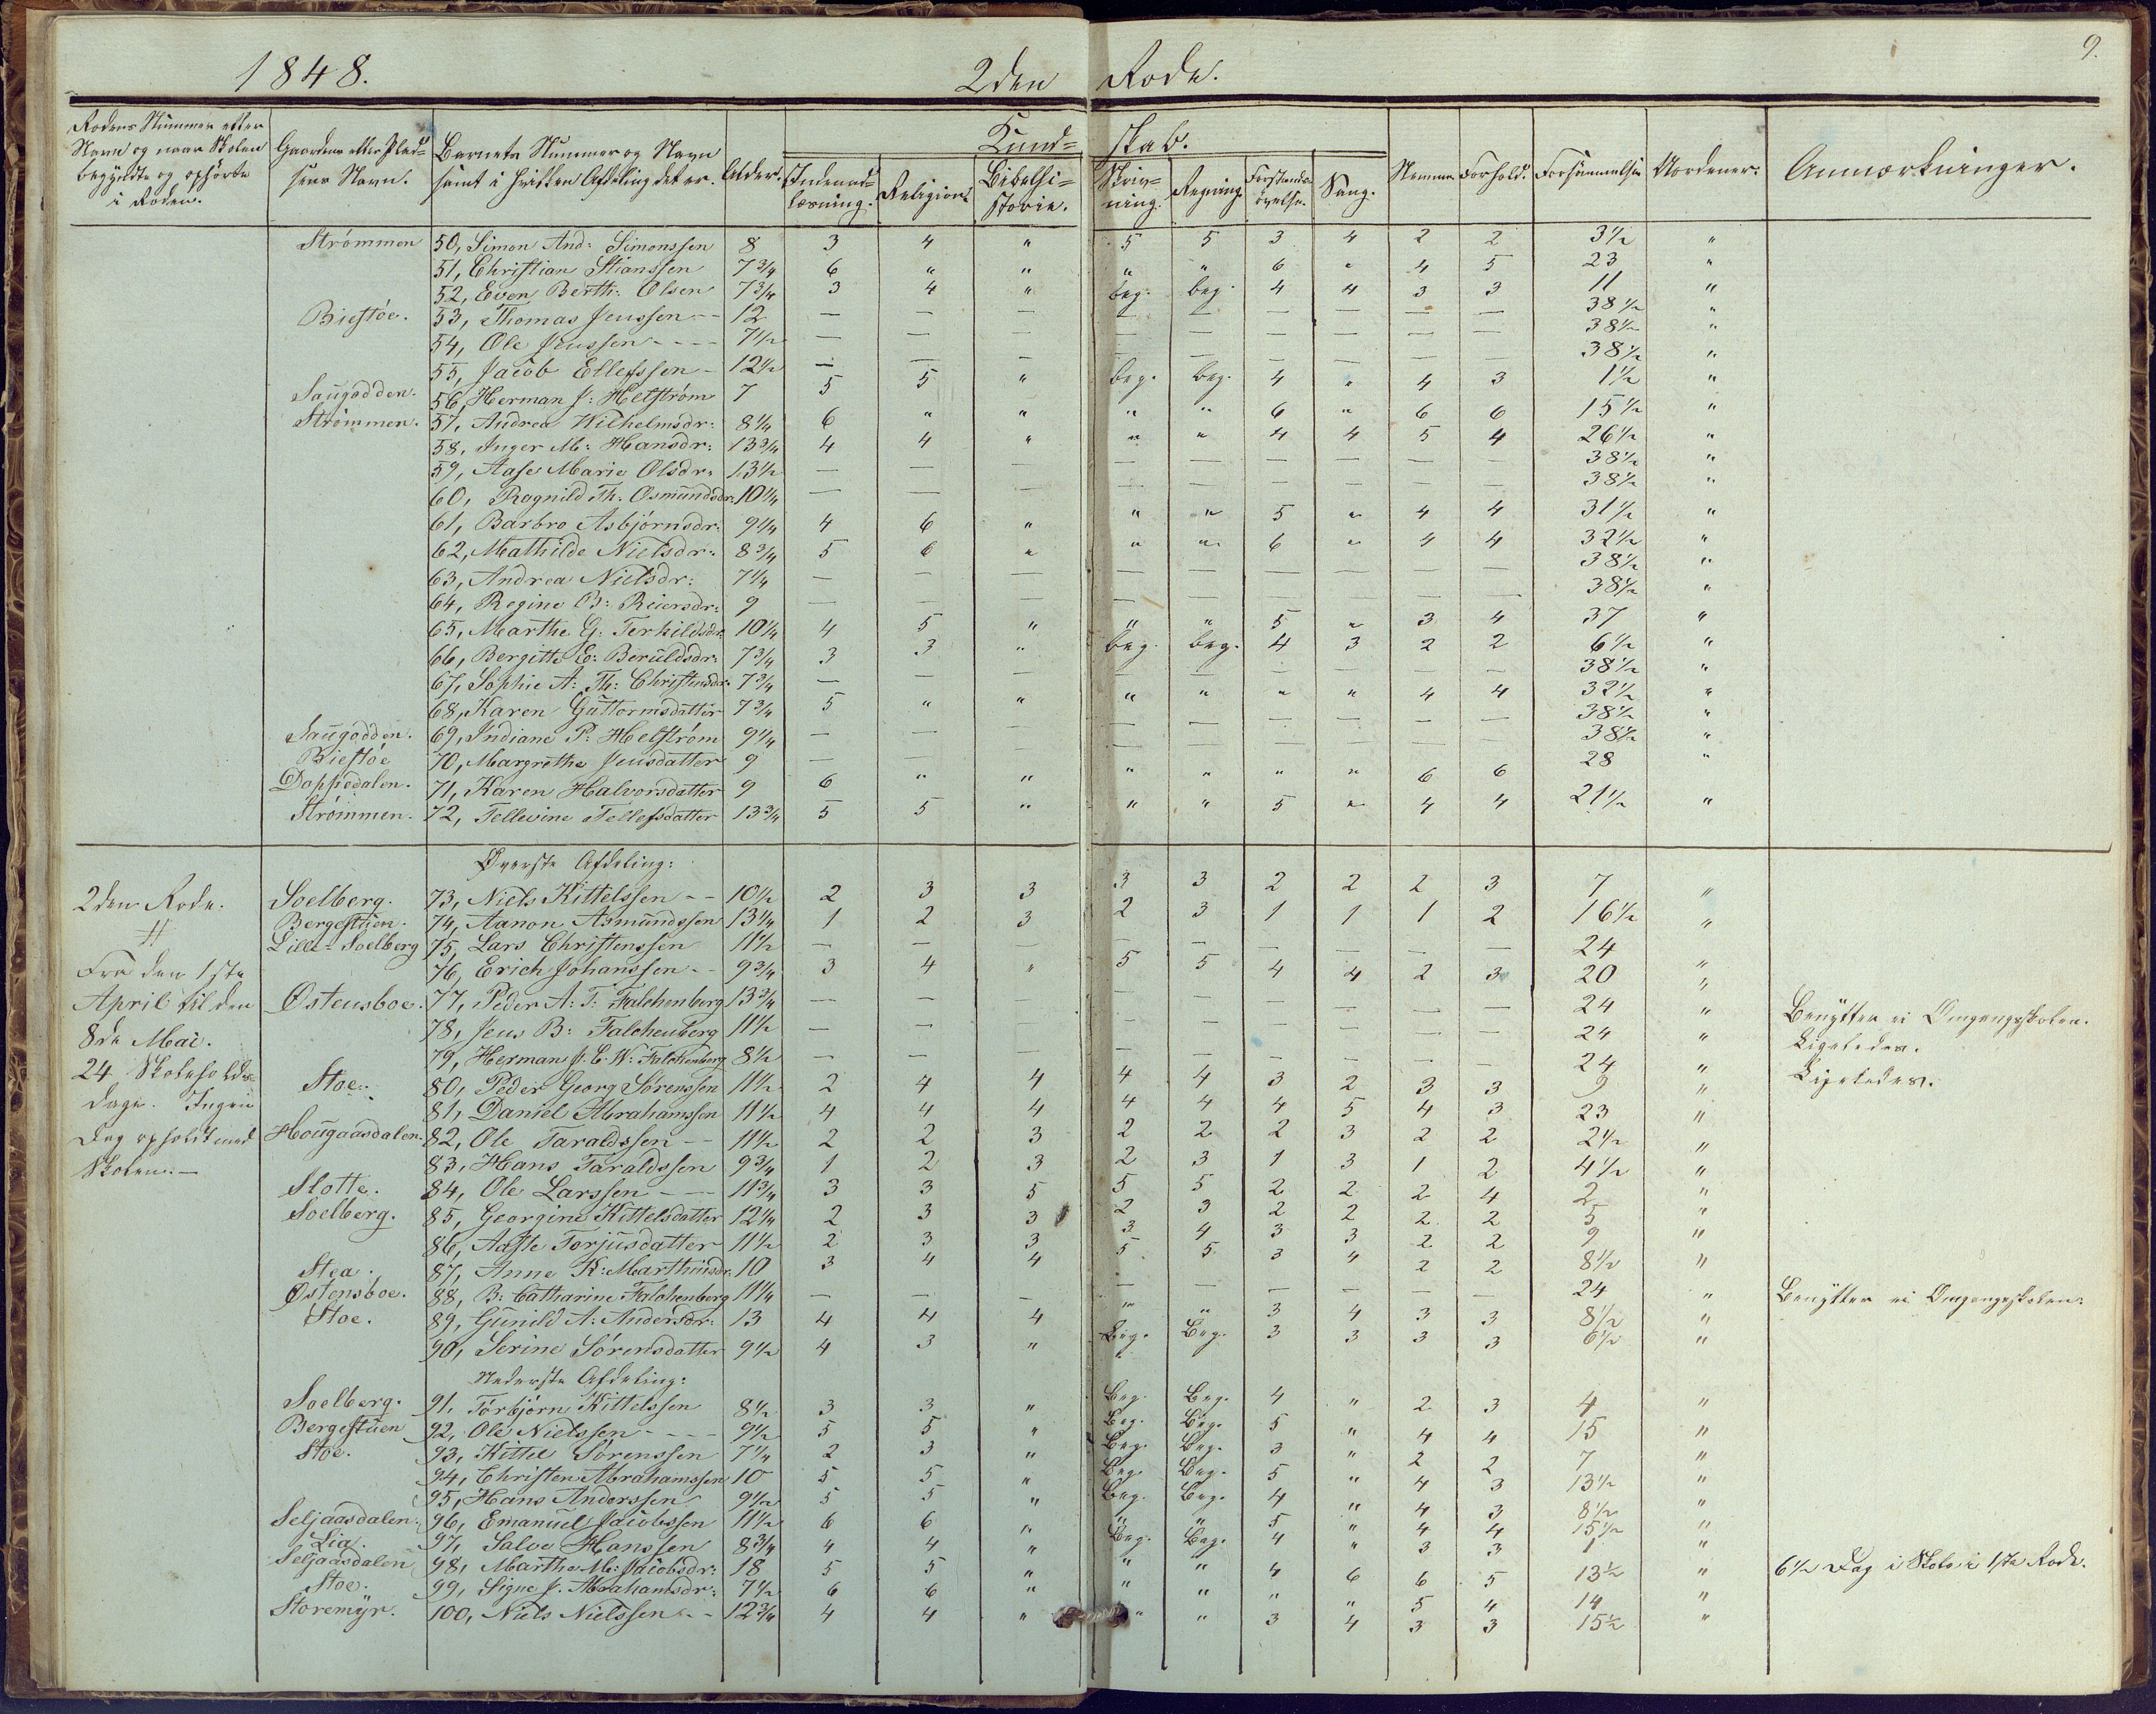 9.
1848. 2den Rode.
Rodens Nummer eller Navn og naar Skolen begyndte og ophørte i Roden. | Gaardens eller Pladsens Navn. | Barnets Nummer og Navn samt i hvilken Afdeling det er. | Alder. | Kundskab. | Indenadlæsning. | Religion. | Bibelhistorie. | Skrivning. | Regning. | Forstandsøvelse. | Sang. | Nemme. | Forhold. | Forsømmelser | Anmærkninger.
Strømmen 50, Simon And: Simonssen 8 3 4 " 5 5 3 4 2 2 3½ "
51, Christian Stianssen 7¾ 6 " " " " 6 " 4 5 23 "
52, Even Berth: Olsen 7¾ 3 4 " beg. beg. 4 4 3 3 11 "
Biestøe. 53, Thomas Jenssen -- 12 — — — — — — — — — 38½ "
54, Ole Jenssen ---- 7½ — — — — — — — — — 38½ "
55, Jacob Ellefssen - 12½ — — — — — — — — — 38½ "
Saugodden. 56, Herman J: Helström 7 5 5 " beg. beg. 4 " 4 3 1½ "
Strømmen. 57, Andrea Wilhelmsdr: 8¼ 6 " " " " 6 " 6 6 15½ "
58, Inger M: Hansdr: 13¾ 4 4 " " " 4 4 5 4 26½ "
59, Aase Marie Olsdr: 13½ — — — — — — — — — 38½ "
60, Ragnild Th: Osmundsdr: 10¼ — — — — — — — — — 38½ "
61, Barbro Asbjørnsdr: 9¼ 4 6 " " " 5 " 4 4 31½ "
62, Mathilde Nielsdr: 8¾ 5 6 " " " 6 " 4 4 32½ "
63, Andrea Nielsdr: 7¼ — — — — — — — — — 38½ "
64, Regine B: Reiersdr: 9 — — — — — — — — — 38½ "
65, Marthe G: Terkildsdr: 10¼ 4 5 " " " 5 " 3 4 37 "
66, Bergitte E: Beruldsdr: 7¾ 3 3 " beg. beg. 4 3 2 2 6½ "
67, Sophie A: Th: Christensdr: 7¾ — — — — — — — — — 38½ "
68, Karen Guttormsdatter 7¾ 5 " " " " " " 4 4 32½ "
Saugodden. 69, Indiane P: Helström 9¼ — — — — — — — — — 38½ "
Biestøe 70, Margrethe Jensdatter 9 — — — — — — — — — 38½ "
Dappedalen. 71, Karen Halvorsdatter 9 6 " " " " " " 6 6 28 "
Strømmen. 72, Tellevine Tellefsdatter 13¾ 5 5 " " " 5 " 4 4 21½ "
Øverste Afdeling:
2den Rode. Soelberg. 73, Niels Kittelssen -- 10½ 2 3 3 3 3 2 2 2 3 7 "
Bergestuen. 74, Aanon Asmundssen 13¼ 1 2 3 2 3 1 1 1 2 16½ "
Lille-Soelberg 75, Lars Christenssen 11½ — — — — — — — — — 24 "
Fra den 1ste 76, Erich Johanssen -- 9¾ 3 4 " 5 5 4 4 2 3 20 "
April til den Østensboe. 77, Peder A: T: Falchenberg 13¾ — — — — — — — — — 24 " Benytter ei Omgangsskolen.
8de Mai. 78, Jens B: Falchenberg 11½ — — — — — — — — — 24 " Ligeledes.
79, Herman J. E. W: Falchenberg 8½ — — — — — — — — — 24 " Ligeledes.
24 Skoleholdsdage. Stoe. 80, Peder Georg Sörenssen 11½ 2 4 4 4 4 3 2 3 3 9 "
Ingen 81, Daniel Abrahamssen 11½ 4 4 4 4 4 4 5 4 3 23 "
Dag opholdt med Hougaasdalen. 82, Ole Taraldssen -- 11½ 2 2 3 2 2 2 3 2 2 2½ "
Skolen.— 83, Hans Taraldssen 9¾ 1 2 3 2 3 1 3 1 2 4½ "
Slotte. 84, Ole Larssen --- 11¾ 3 3 5 5 5 2 2 2 4 2 "
Soelberg. 85, Georgine Kittelsdatter 12¼ 2 3 3 2 3 2 2 2 2 5 "
86, Aaste Torjusdatter 11½ 2 3 3 3 4 3 3 2 2 9 "
Stea. 87, Anne K: Marthinsdr. 10 3 4 4 5 5 3 4 2 2 8½ "
Østensboe. 88, B: Catharine Falchenberg 11¼ — — — — — — — — — 24 " Benytter ei Omgangsskolen:
Stoe. 89, Gunild A: Andersdr: 13 4 4 4 " " 3 4 3 3 8½ "
90, Serine Sörensdatter 9½ 4 3 " Beg. Beg. 3 3 3 3 6½ "
Nederste Afdeling:
Soelberg. 91, Torbjørn Kittelssen 8½ 3 3 " Beg. Beg. 4 " 2 3 4 "
Bergestuen 92, Ole Nielssen ---- 9½ 5 5 " Beg. Beg. 5 " 4 4 15 "
Stoe. 93, Kittel Sørenssen 7¼ 2 3 " Beg. Beg. 3 " 2 2 7 "
94, Christen Abrahamssen 10 5 5 " Beg. Beg. 5 " 4 3 13½ "
95, Hans Anderssen 9½ 5 5 " Beg. Beg. 4 " 4 3 8½ "
Seljaasdalen. 96, Emanuel Jacobssen 11½ 6 6 " " " 5 " 4 4 15½ "
Lia. 97, Salve Hanssen 8¾ 4 4 " Beg. Beg. 4 " 3 3 1 "
Seljaasdalen 98, Marthe M: Jacobsdr: 18 5 5 " " " 4 6 6 5 13½ " 6½ Dag i Skole i 1ste Rode.
Stoe. 99, Signe J. Abrahamsdr: 7½ 6 6 " " " " " 5 4 14 "
Storemyr. 100, Niels Nielssen -- 12¾ 4 4 " " " 3 4 3 3 15½ "